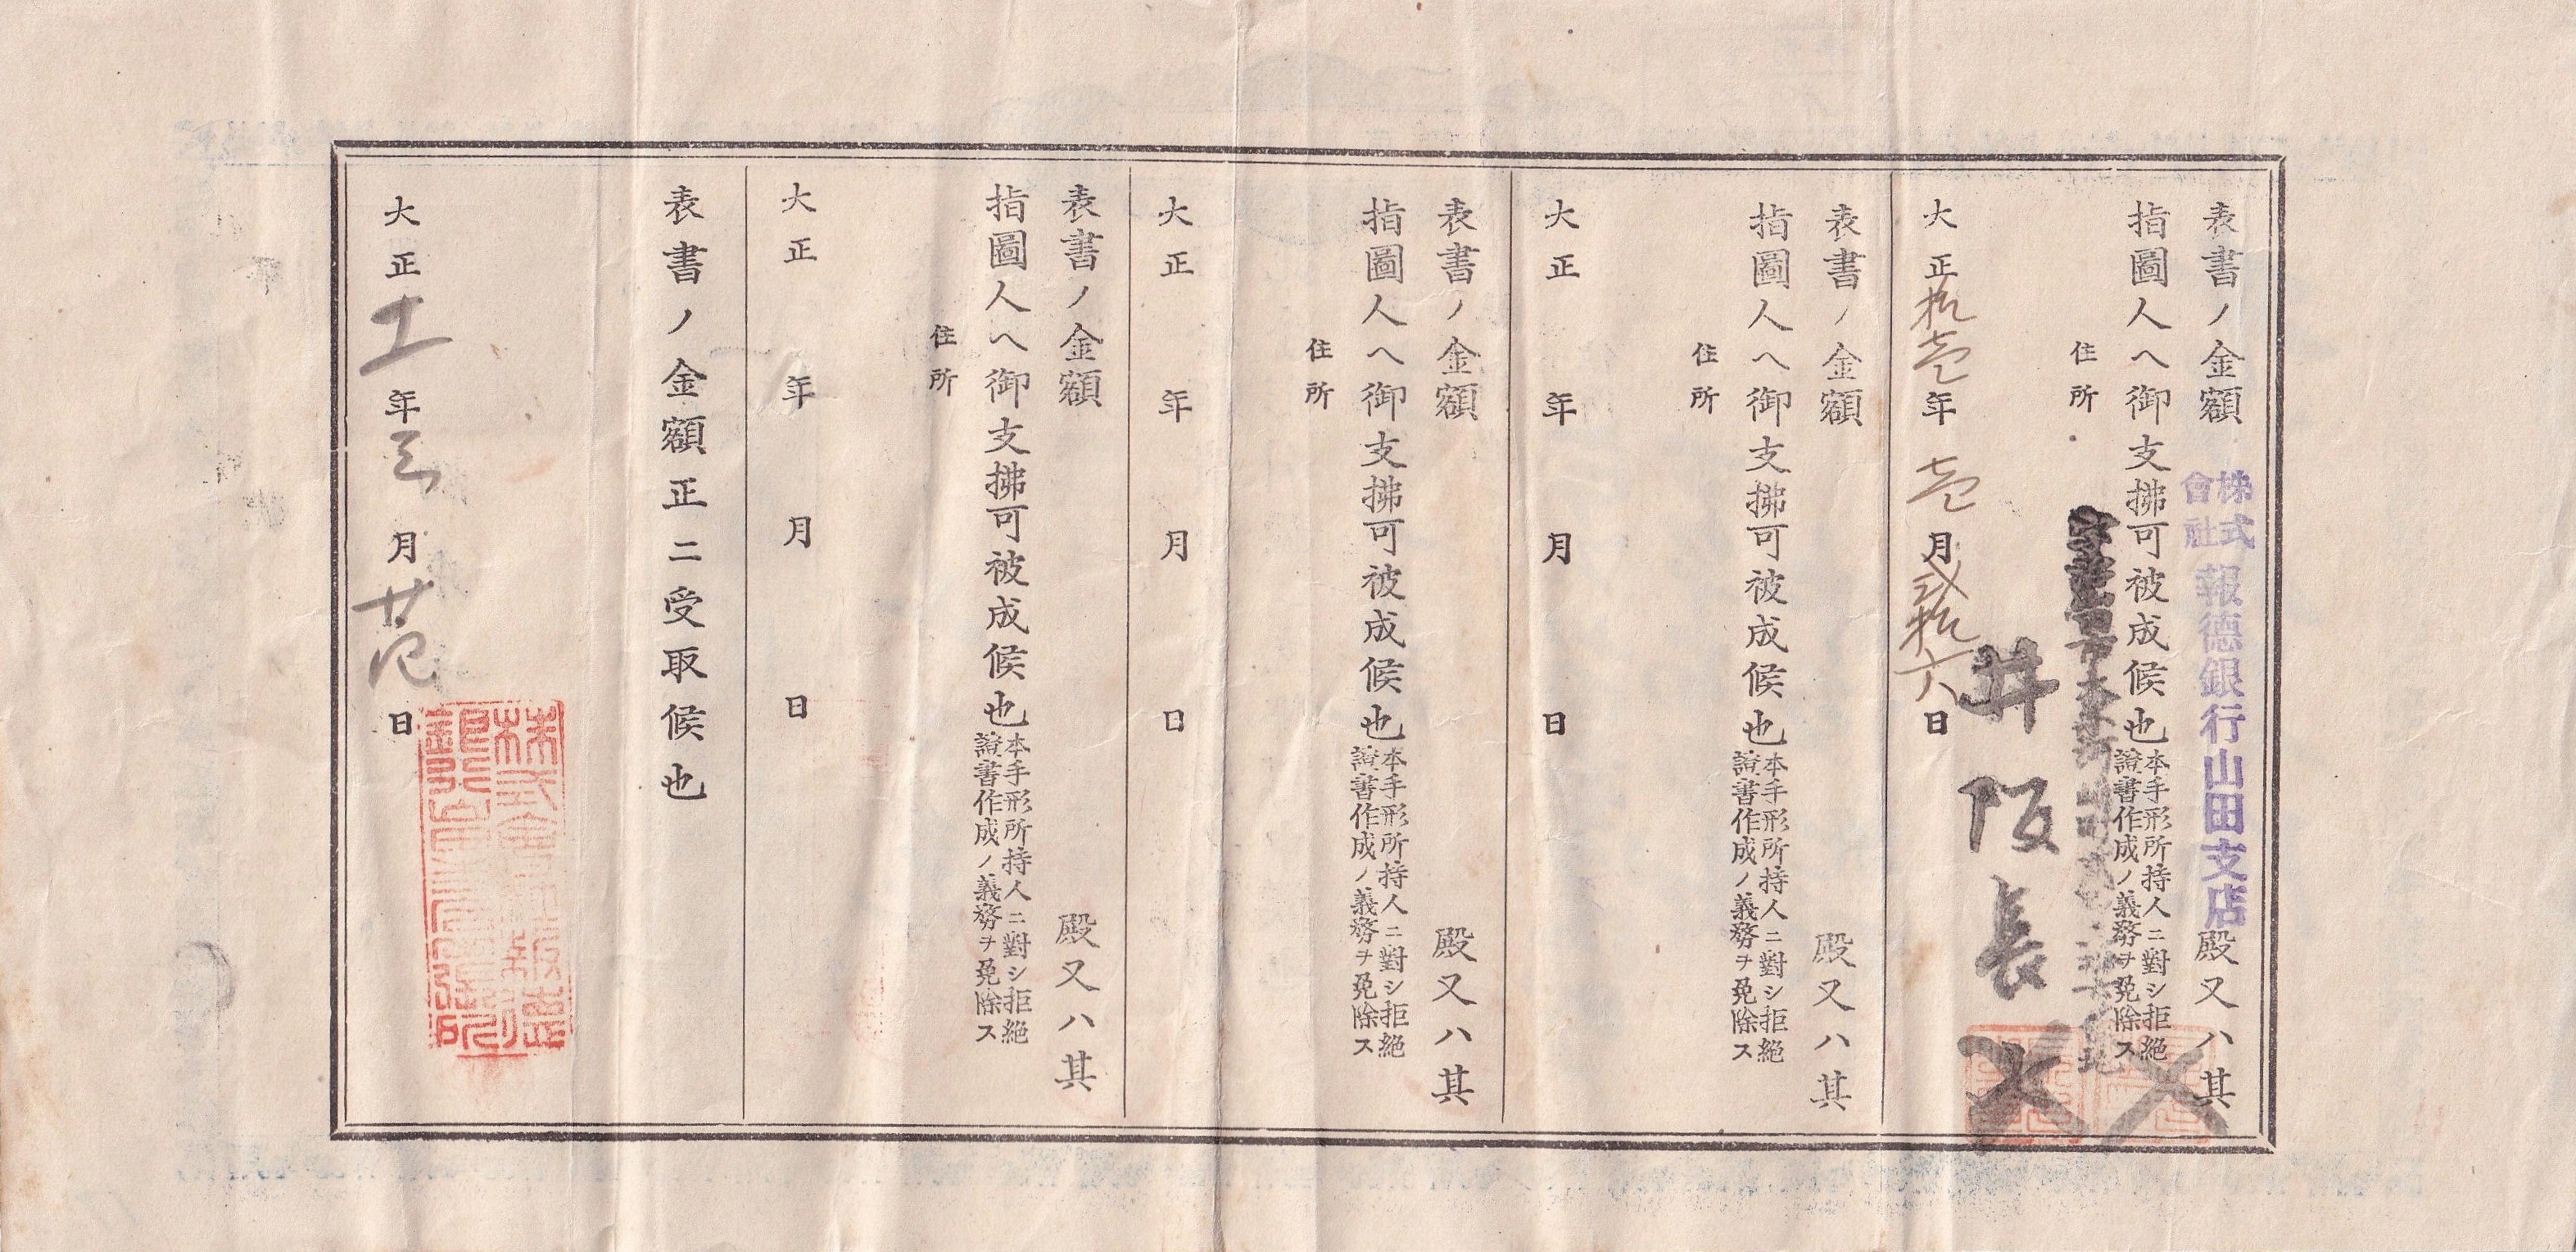 表書ノ金額 株式會社 報德銀行山田支店 殿又ハ其
指圖人ヘ御支拂可被成候也 本手形所持人ニ對シ拒絶
證書作成ノ義務ヲ免除ス
住所
井阪長
大正拾壱年壱月弐拾六日
表書ノ金額 殿又ハ其
指圖人ヘ御支拂可被成候也 本手形所持人ニ對シ拒絶
證書作成ノ義務ヲ免除ス
住所
大正 年 月 日
表書ノ金額 殿又ハ其
指圖人ヘ御支拂可被成候也 本手形所持人ニ對シ拒絶
證書作成ノ義務ヲ免除ス
住所
大正 年 月 日
表書ノ金額 殿又ハ其
指圖人ヘ御支拂可被成候也 本手形所持人ニ對シ拒絶
證書作成ノ義務ヲ免除ス
住所
大正 年 月 日
表書ノ金額正ニ受取候也
株式會社報德
大正十一年三月廿 日